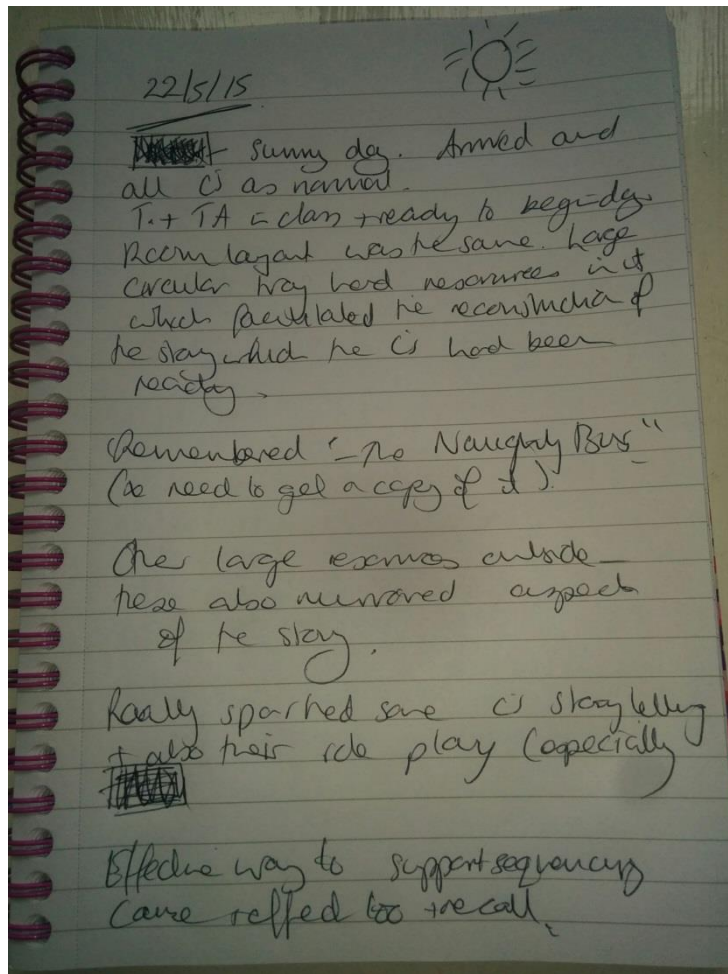 22/5/15
- Sunny day. Arrived and
all cs as normal.
T. + TA in class + ready to begin day.
Room layout was the same. Large
circular tray had resources in it
which facilitated the reconstruction of
the story which the cs had been
reading.
Remembered "The Naughty Bus"
(need to get a copy of it).
Other large resources outside -
these also mirrored aspects
of the story.
Really sparked some cs storytelling
+ also their role play (especially
Effective way to support sequencing
+ recall.